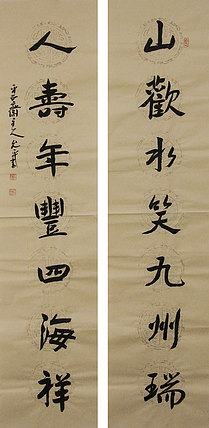 山歡水笑九州瑞
人壽年豐四海祥